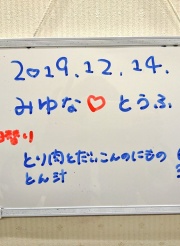 2019.12.14.
みゆな♡とうふ
替り
とり肉とだいこんのにもの
とん汁